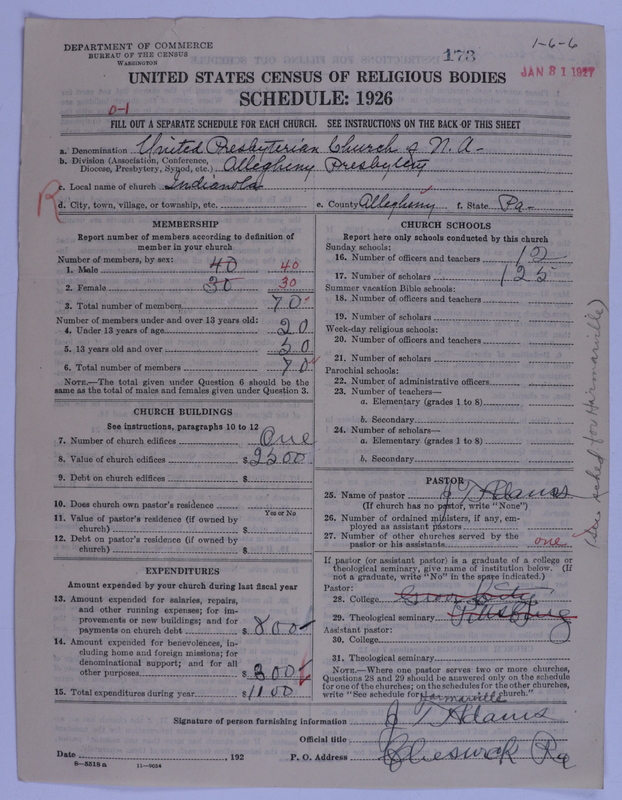 DEPARTMENT OF COMMERCE
BUREAU OF THE CENSUS
WASHINGTON
173
1-6-6
JAN 31 1927
UNITED STATES CENSUS OF RELIGIOUS BODIES
SCHEDULE: 1926
0-1
FILL OUT A SEPARATE SCHEDULE FOR EACH CHURCH. SEE INSTRUCTIONS ON THE BACK OF THIS SHEET
a. Denomination United Presbyterian Church of N. A.
b. Division (Association, Conference,
Diocese, Presbytery, Synod, etc.) Allegheny Presbytery
c. Local name of church Indianola
R
d. City, town, village, or township, etc. e. County Allegheny f. State Pa-
MEMBERSHIP
Report number of members according to definition of
member in your church
Number of members, by sex:
1. Male 40 40
2. Female 30 30
3. Total number of members 70
Number of members under and over 13 years old:
4. Under 13 years of age 20
5. 13 years old and over 50
6. Total number of members 70
NOTE.—The total given under Question 6 should be the
same as the total of males and females given under Question 3.
CHURCH BUILDINGS
See instructions, paragraphs 10 to 12
7. Number of church edifices One
8. Value of church edifices $2500
9. Debt on church edifices $
10. Does church own pastor's residence
Yes or No
11. Value of pastor's residence (if owned by
church) $
12. Debt on pastor's residence (if owned by
church) $
EXPENDITURES
Amount expended by your church during last fiscal year
13. Amount expended for salaries, repairs,
and other running expense; for im-
provements or new buildings; and for
payments on church debt $800-
14. Amount expended for benevolences, in-
cluding home and foreign missions; for
denominational support; and for all
other purposes $300
15. Total expenditures during year $1100
CHURCH SCHOOLS
Report here only schools conducted by this church
Sunday schools:
16. Number of officers and teachers 12
17. Number of scholars 125
Summer vacation Bible schools:
18. Number of officers and teachers
19. Number of scholars
Week-day religious schools:
20. Number of officers and teachers
21. Number of scholars
Parochial schools:
22. Number of administrative officers
23. Number of teachers—
a. Elementary (grades 1 to 8)
b. Secondary
24. Number of scholars—
a. Elementary (grades 1 to 8)
b. Secondary
PASTOR
25. Name of pastor J T Adams
(If church has no pastor, write "None")
26. Number of ordained ministers, if any, em-
ployed as assistant pastors
27. Number of other churches served by the
pastor or his assistants one
If pastor (or assistant pastor) is a graduate of a college or
theological seminary, give name of institution below. (If
not a graduate, write "No" in the space indicated.)
Pastor:
28. College Grove City
29. Theological seminary Pittsburg
Assistant pastor:
30. College
31. Theological seminary
NOTE.—Where one pastor serves two or more churches,
Questions 28 and 29 should be answered only on the schedule
for one of the churches; on the schedules for the other churches,
write "See schedule for Harmarville church."
(See sched for Harmarville)
Signature of person furnishing information J T Adams
Official title
Date , 192 P. O. Address Cheswick Pa
8-5518a 11-9054